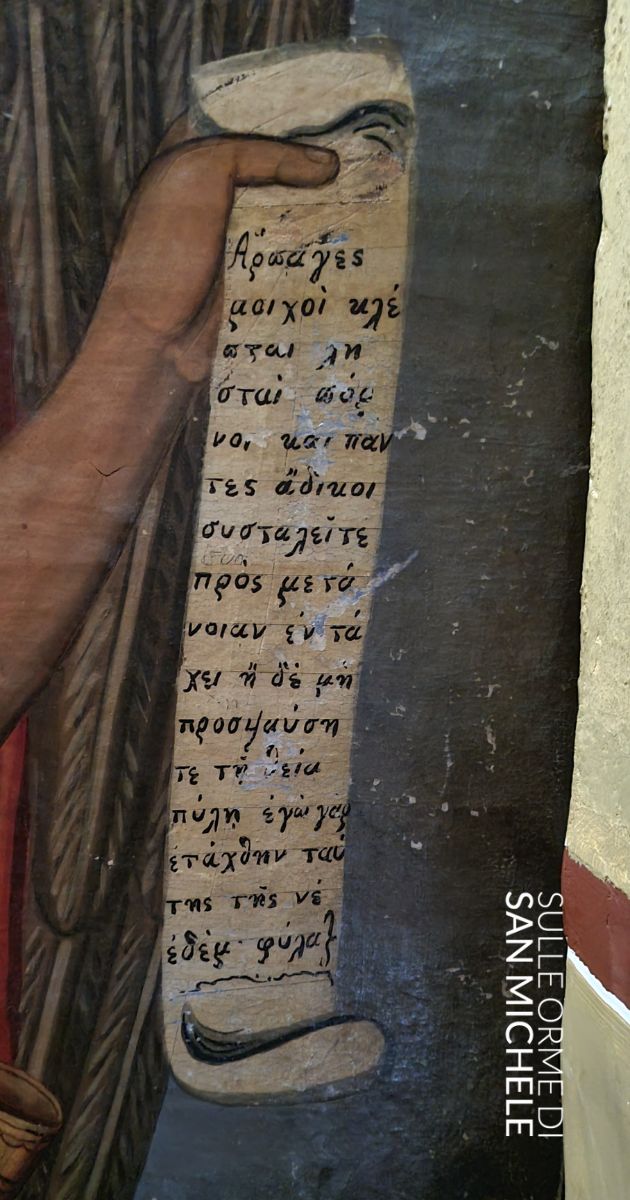 Ἅρπαγες
μοιχοὶ κλέ
πται λη
σταὶ πόρ
νοι και παν
τες ἄδικοι
συσταλεῖτε
πρὸς μετά
νοιαν ἐν τά
χει
τε τῇ θείᾳ
πύλῃ ἐγὼ γὰρ
ἐτάχθην ταύ
της τῆς
φύλαξ
SULLE ORME DI
SAN MICHELE